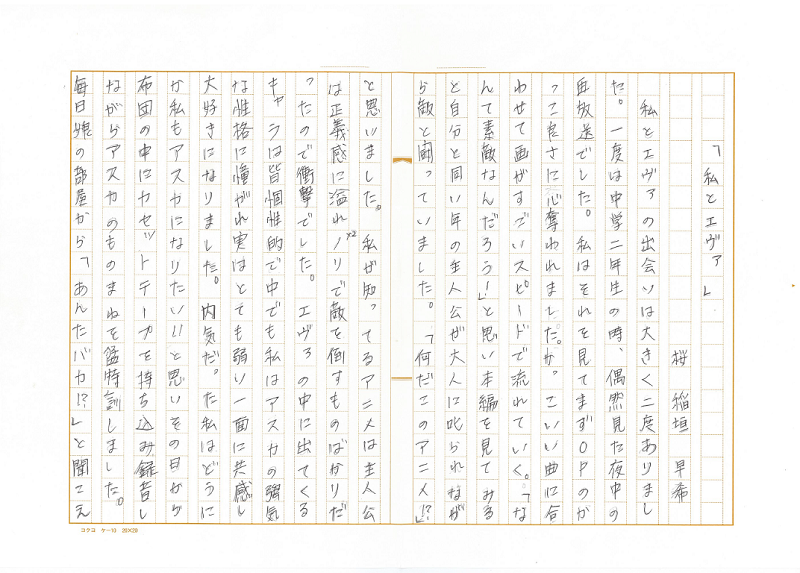 「私とエヴァ」
桜 稲垣 早希
私とエヴァの出会いは大きく二度ありまし
た。一度は中学二年生の時、偶然見た夜中の
再放送でした。私はそれを見てまずOPのか
っこ良さに心奪われました。か。こいい曲に合
わせて画がすごいスピードで流れていく。「な
んて素敵なんだろう!」と思い本編を見てみる
と自分と同い年の主人公が大人に叱られなが
ら敵と闘っていました。「何だこのアニメ!?」
と思いました。私が知ってるアニメは主人公
は正義感に溢れノリ×2で敵を倒すものばかりだ
ったので衝撃でした。エヴァの中に出てくる
キャラは皆個性的で中でも私はアスカの強気
な性格に憧がれ実はとても弱い一面に共感し
大好きになりました。内気だった私はどうに
か私もアスカになりたい!!と思いその日から
布団の中にカセットテープを持ち込み録音し
ながらアスカのものまねを猛特訓しました。
毎日娘の部屋から「あんたバカ!?」と聞こえ
コクヨ ケー10 20×20